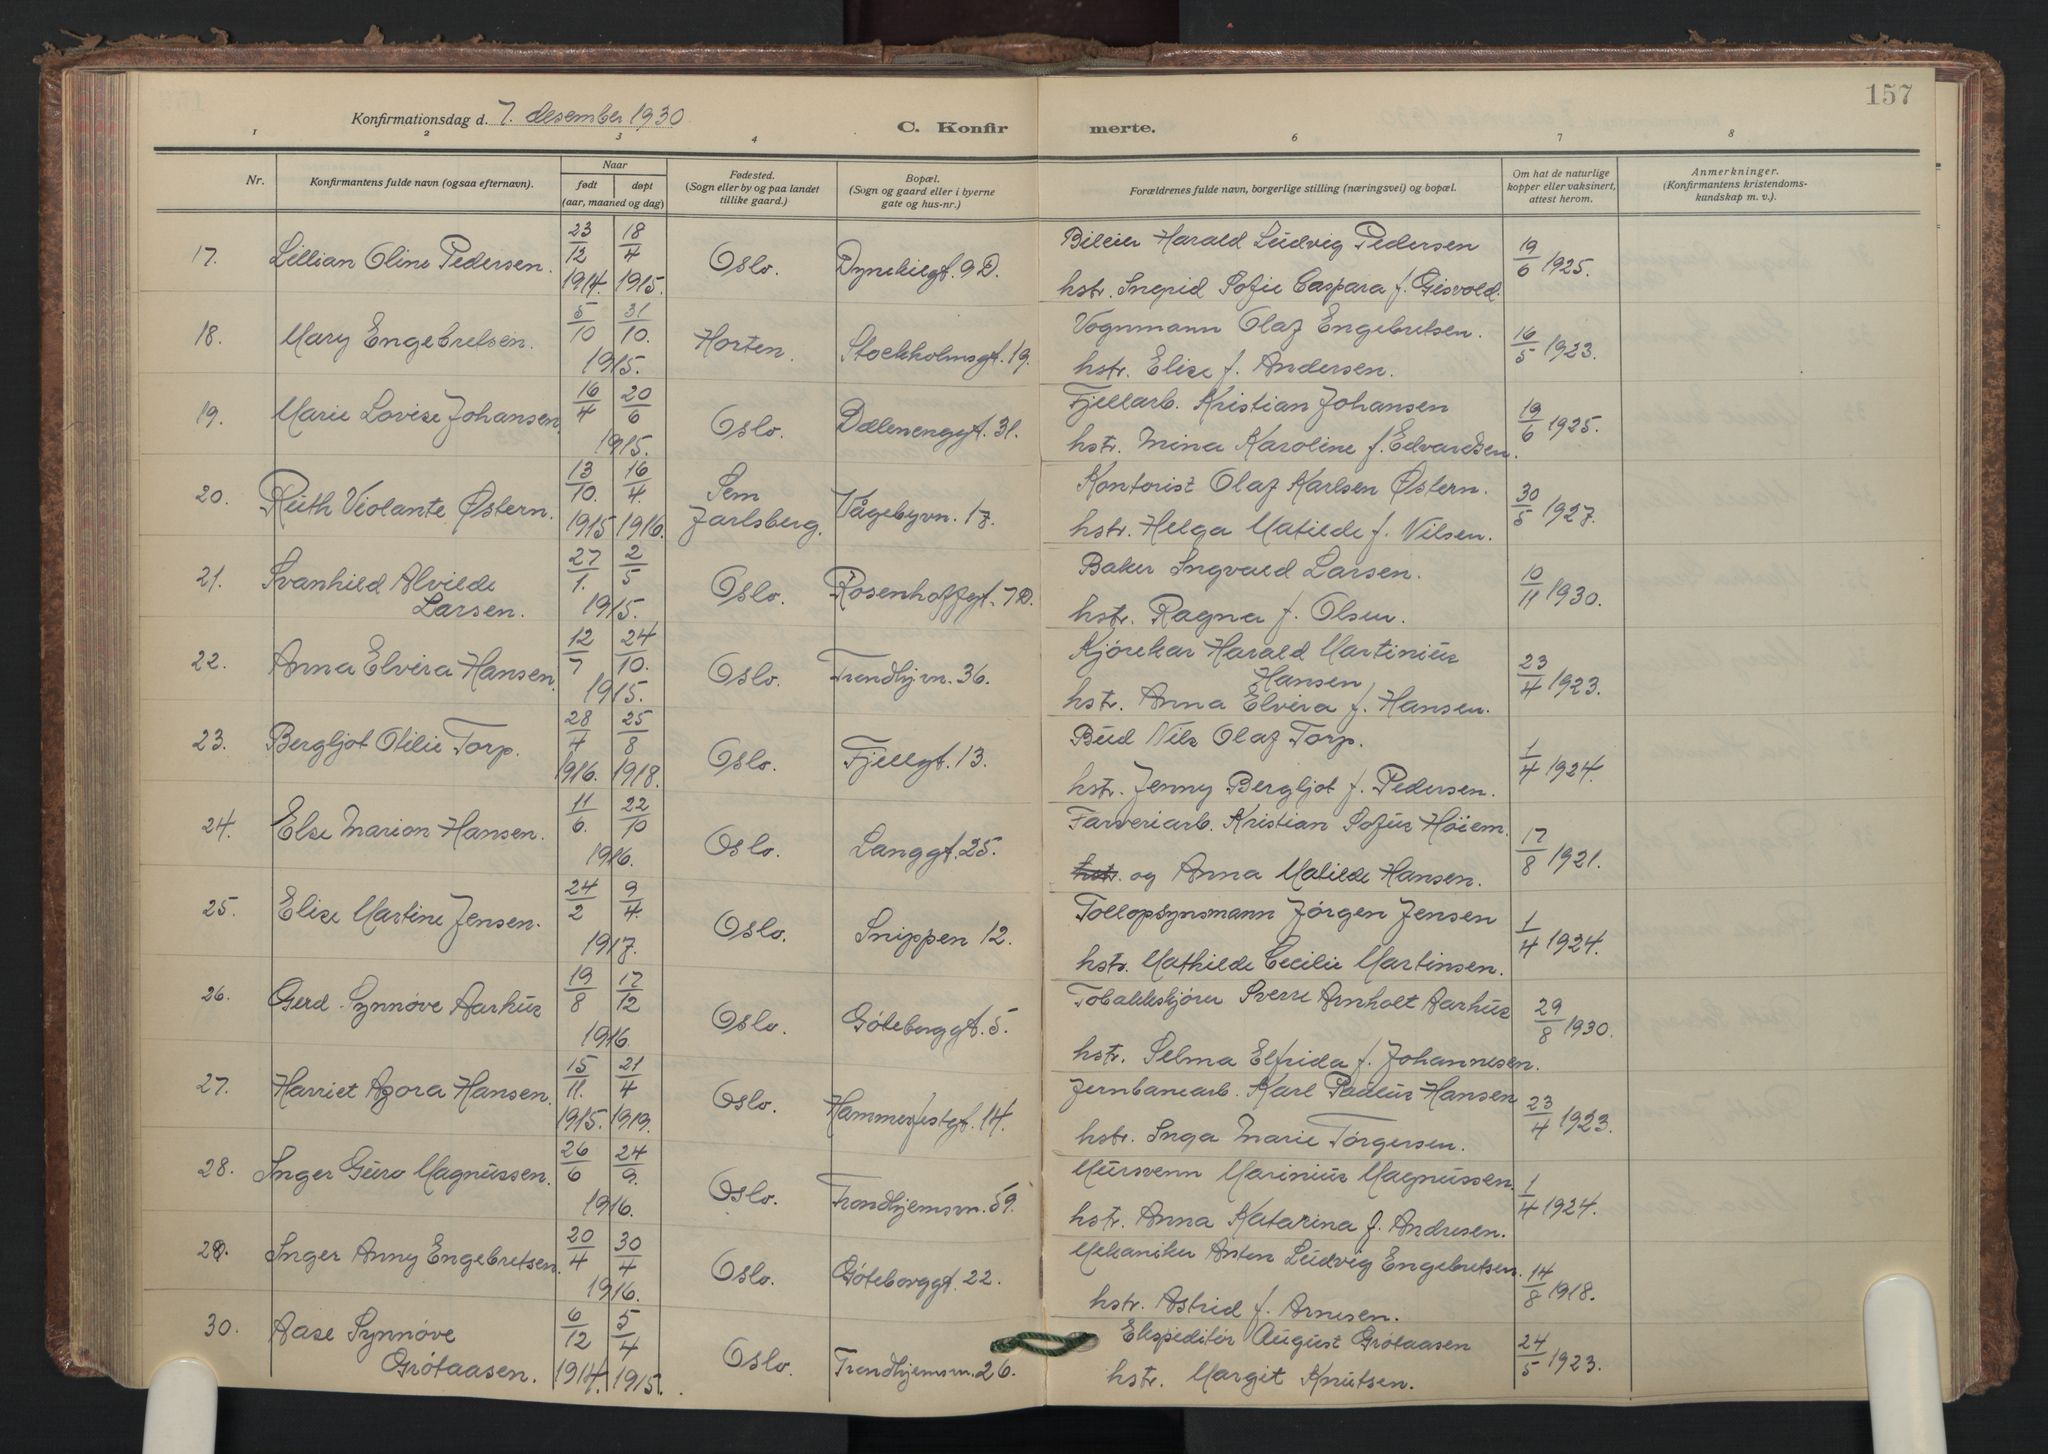 157
Konfirmationsdag d. 7. desember 1930
C. Konfirmerte.
1 2 3 4 6 7 8
Nr.
Konfirmantens fulde navn (ogsaa efternavn).
Naar
født døpt
(aar, maaned og dag)
Fødested.
(Sogn eller by og paa landet
tillike gaard.)
Bopæl.
(Sogn og gaard eller i byerne
gate og hus-nr.)
Forældrenes fulde navn, borgerlige stilling (næringsvei) og bopæl.
Om hat de naturlige
kopper eller vaksinert,
attest herom.
Anmerkninger.
(Konfirmantens kristendoms-
kundskap m. v.).
17. Lillian Oline Pedersen. 23/12 1914. 18/4 1915. Oslo. Dynekilgt. 9 D. Bileier Harald Ludvig Pedersen 19/6 1925.
hstr. Ingrid Sofie Caspara f. Gisvold.
18. Mary Engebretsen. 5/10 31/10. 1915. Horten. Stockholmsgt. 19. Vognmann Olaf Engebretsen. 16/5 1923.
hstr. Elise f. Andersen.
19. Marie Lovise Johansen. 16/4 20/6 1915. Oslo. Dælenenggt. 31. Fjellarb. Kristian Johansen 19/6 1925.
hstr. Mina Karoline f. Edvardsen.
20. Ruth Violante Østern. 13/10. 1915 16/4. 1916. Sem Jarlsberg. Vågebyvn. 17. Kontorist Olaf Karlsen Østern. 30/5 1927.
hstr. Helga Matilde f. Nilsen.
21. Svanhild Alvilde
Larsen. 27/1. 2/5 1915. Oslo. Rosenhoffgt. 7 D. Baker Ingvald Larsen. 10/11 1930.
hstr. Ragna f. Olsen.
22. Anna Elvira Hansen. 12/7 24/10. 1915. Oslo. Trondhjvn. 36. Kjørekar Harald Martinius
Hansen 23/4 1923.
hstr. Anna Elvira f. Hansen.
23. Bergljot Otilie Torp. 28/4 1916. 25/8 1918. Oslo. Fjellgt. 13. Bud Nils Olaf Torp. 1/4 1924.
hstr. Jenny Bergljot f. Pedersen.
24. Else Marion Hansen. 11/6. 22/10 1916. Oslo. Langgt. 25. Farveriarb. Kristian Sofus Høiem. 17/8 1921.
hstr. og Anna Matilde Hansen.
25. Elise Martine Jensen. 24/2 9/4. 1917. Oslo. Snippen 12. Tollopsynsmann Jørgen Jensen 1/4 1924.
hstr. Mathilde Cecilie Martinsen.
26. Gerd Synnøve Aarhus 19/8 17/12 1916. Oslo. Göteborggt. 5. Tobakkskjører Sverre Arnholt Aarhus 29/8 1930.
hstr. Selma Elfrida f. Johannesen.
27. Harriet Agora Hansen. 15/11. 1915. 21/4 1919. Oslo. Hammerfestgt. 14. Jernbanearb. Karl Paulus Hansen 23/4 1923.
hstr. Inga Marie Torgersen.
28. Inger Guro Magnussen. 26/6 24/9. 1916. Oslo. Trondhjemsvn. 59. Mursvenn Marinius Magnussen. 1/4 1924.
hstr. Anna Katarina f. Andresen.
29. Inger Anny Engebretsen. 20/4 30/4 1916. Oslo. Göteborggt. 22. Mekaniker Anton Ludvig Engebretsen. 14/8 1918.
hstr. Astrid f. Arnesen.
30. Aase Synnøve
Grøtaasen. 6/12 1914. 5/4 1915. Oslo. Trondhjemsvn. 26. Ekspeditør August Grøtaasen 24/5 1923.
hstr. Margit Knutsen.